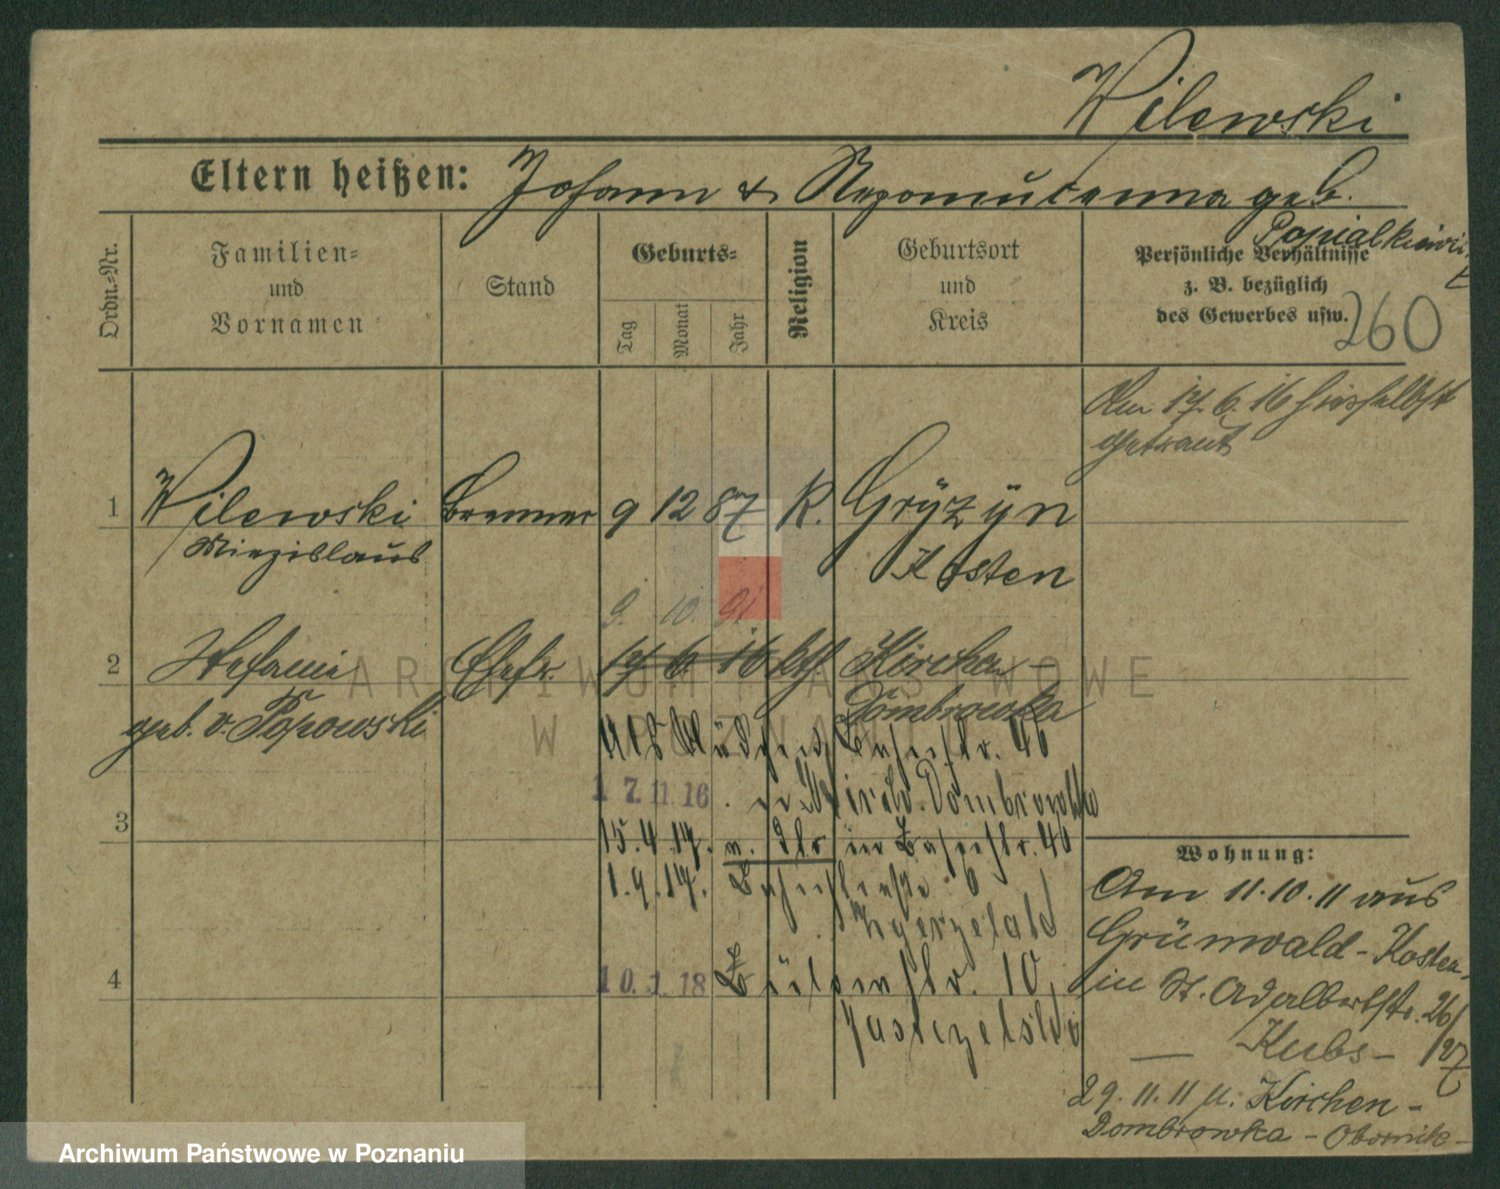 Wilewski
Eltern heißen: Johann & Nepomucenna geb.
Popialkiewicz
Ordn.-Nr.
Familien-
und
Vornamen
Stand
Geburts-
Tag
Monat
Jahr
Religion
Geburtsort
und
Kreis
Persönliche Verhältnisse
z. B. bezüglich
des Gewerbes usw.
260
Am 17.6.16 hierselbst
getraut
1 Wilewski Brenner 9 12 87 K. Gryzyn
Miezislaus Kosten
9. 10. 91
2 Stefanie Ehefr. 17 6. 16 kth Kirchen-
geb. v. Popowski Dombrowka
46
17.11.16 . n Kirch. Dombrowka
3
15.4.17. v. dlr in 46
1.9.17. 6
4
10.1.18 10,
Wohnung:
Am 11.10.11 aus
Grünwald-Kosten
in St. Adalbertstr. 26/27
— Kubs —
29.11.11 n. Kirchen-
Dombrowka - Obornik-
ARCHIWUM PAŃSTWOWE
W POZNANIU
Archiwum Państwowe w Poznaniu